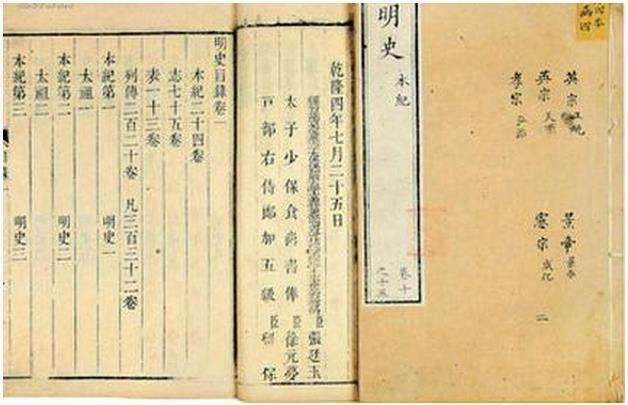 英宗正統
英宗天順
孝宗弘治
景帝景泰
憲宗成化
二
明史 本紀
卷十
乾隆四年七月二十五日
臣張廷玉
太子少保食尚書俸臣徐元夢
戶部右侍郎加五級臣留保
明史目錄卷一
本紀二十四卷
志七十五卷
表一十三卷
列傳二百二十卷 凡三百三十二卷
本紀第一 明史一
太祖一
本紀第二 明史二
太祖二
本紀第三 明史三